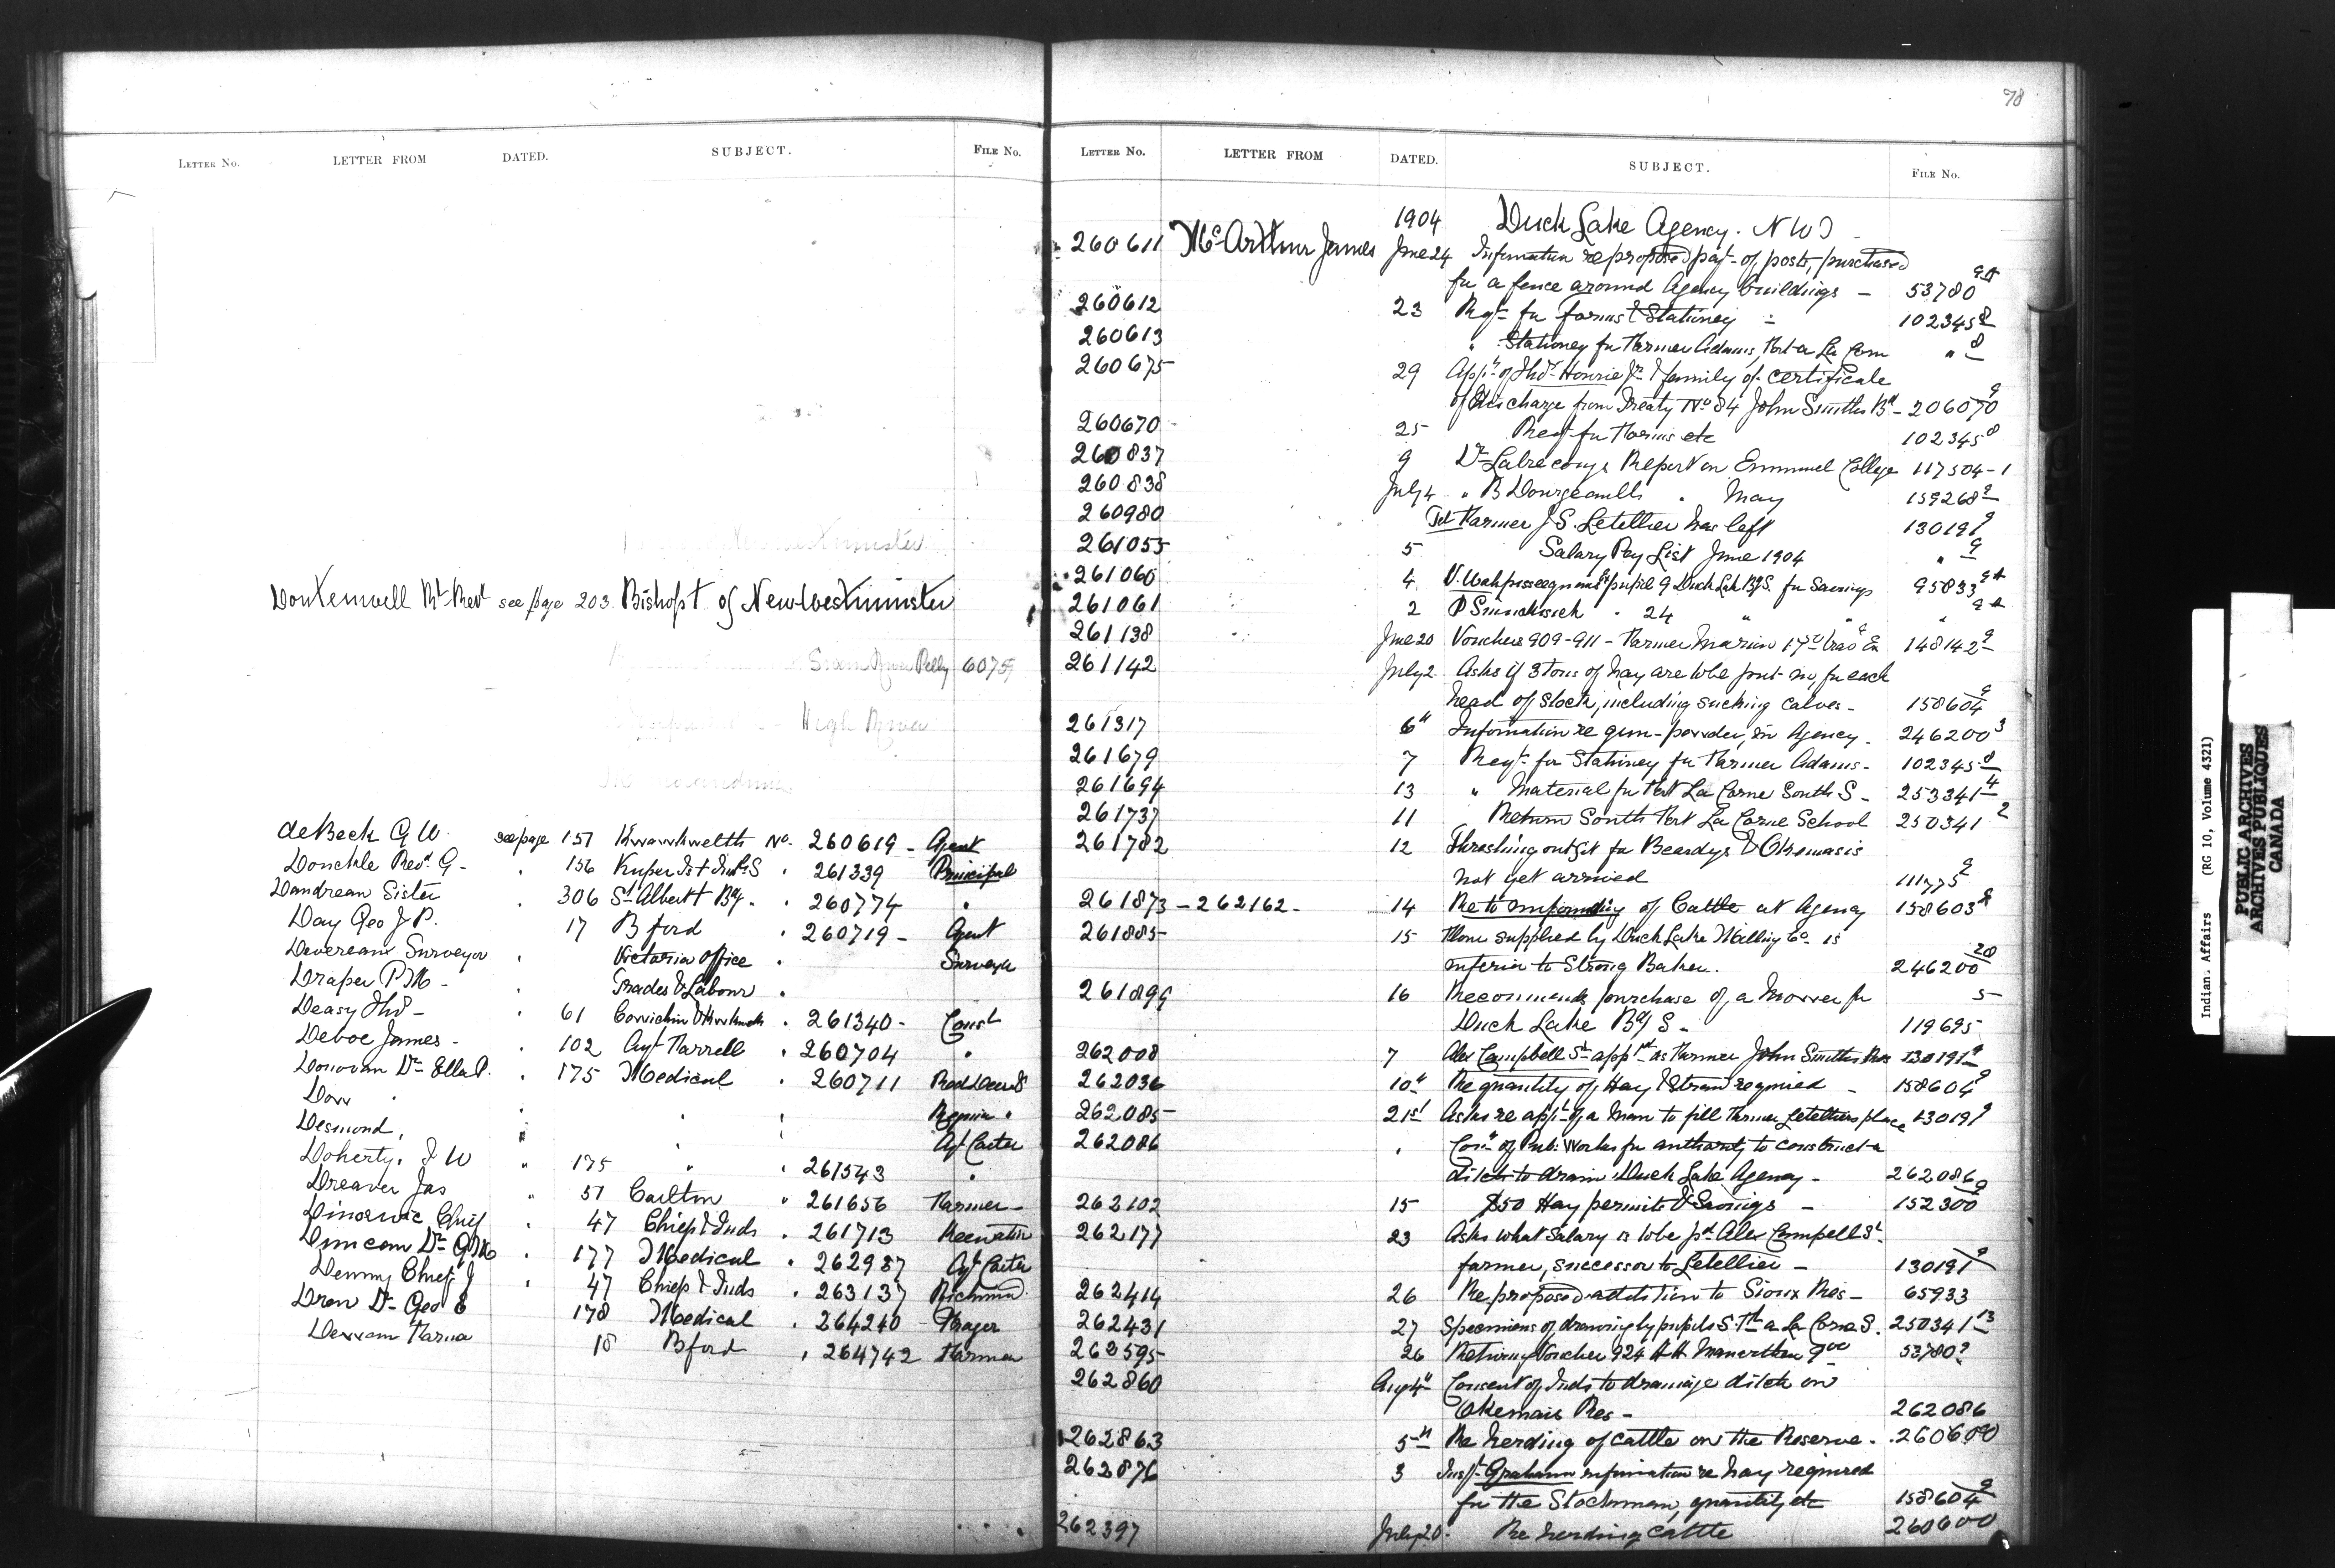 78
LETTER NO. LETTER FROM DATED. SUBJECT. FILE NO.
Dontenwell Rt Revd see page 203 Bishop of New Westminster
Swan River Pelly 6075
High River
de Beck G W. see page 157 Kwawkwelth No. 260619 - Agent
Donckle Revd G - " 156 Kuper Isd Indl S " 261339 Principal
Dandrean Sister " 306 St Albert Bdg. " 260774 "
Day Geo J P. " 17 B ford " 260719 - Agent
Devereaux Surveyor " Victoria office " Surveyor
Draper P M - " Trades & Labour "
Deasy Thos - " 61 Cowichin " 261340 - Const
Deboe James - " 102 Agt Farrell " 260704 "
Donovan Dr Ella P. " 175 Medical " 260711 Red Deer S
Dow " " " " Regina "
Desmond, " " " Agt Carter
Doherty, J W " 175 " " 261543 "
Dreaver Jas " 51 Carlton " 261656 Farmer -
Dinorwic Chief " 47 Chief & Inds " 261713 Keewatin
Duncan Dr G M " 177 Medical " 262987 Agt Carter
Denny Chief J " 47 Chief & Inds " 263137 Richmond
Drew Dr Geo E 178 Medical " 264240 - Hager
18 Bford " 264742 Farmer
LETTER NO. LETTER FROM DATED. SUBJECT. FILE No.
1904 Duck Lake Agency. N W T
260611 McArthur James June 24 Information re proposed payt of posts, purchased
for a fence around Agency buildings - 53780
260612 23 Reqt for forms & Stationery - 102345 8
260613 " Stationery for Farmer Adams, Fort a La Corn " 8
260675 29 Appln of Thos Hourie Jr & family of certificate
of discharge from Treaty No 84 John Smiths Bd - 206070 9
260670 25 Reqt for Forms etc 102345 8
260837 9 Dr Labrecougs Report on Emmnuel College 117504-1
260838 July 4 " " May 159268 9
260980 Tel Farmer J S. Letellier has left 130191 9
261055 5 Salary Pay List June 1904 " 9
261060 4 pupil 9 Duck Lake Bdg S. for Savings 95833
261061 2 " 24 " "
261138 June 20 Vouchers 909-911 - Farmer Marion 148142 9
261142 July 2 Asks if 3 tons of hay are to be put in, for each
head of Stock, including sucking calves - 158604 9
261317 6" Information re gun-powder, in Agency. 246200 3
261679 7 Reqt for Stationery for Farmer Adams - 102345 8
261694 13 " Material for Fort La Corne South S - 253341 4
261737 11 Return South Fort La Corne School 250341 2
261782 12 Threshing outfit for Beardys & Okemasis
not yet arrived 111775 2
261873 - 262162 - 14 Re to impounding of Cattle at Agency 158603
261885 15 Flour supplied by Duck Lake Milling Co. is
inferior to Strong Baker. 246200 28
261899 16 Recommends purchase of a Mower for
Duck Lake Bdg S - 119695 5
262008 7 Alex Campbell Sr appltd as Farmer John Smiths Res 130191 9
262036 10" Re quantity of Hay & Straw required - 158604 9
262085 21st Asks re appt of a man to fill Farmer Letelliers place 130191 9
262086 " Comr of Pub: Works for authority to construct a
ditch to drain Duck Lake Agency - 262086
262102 15 $50 Hay permits & Savings - 152300 9
262177 23 Asks what salary is to be pd Alex Campell Sr
farmer, successor to Letellier - 130191 9
262414 26 Re proposed addition to Sioux Res - 65933
262431 27 Specimens of drawing by pupils S Ft a La Corne S. 250341 13
262595 26 Returning Voucher 924 53780
262860 Aug 4" Consent of Inds to drainage ditch on
Okemais Res - 262086
262863 5th Re herding of cattle on the Reserve. 260600
262876 3 Inspr Graham information re hay required
for the Stockman, quantity etc 158604 9
262397 July 20. Re herding cattle 260600
Indian Affairs (RG 10, Volume 4321)
PUBLIC ARCHIVES
ARCHIVES PUBLIQUES
CANADA